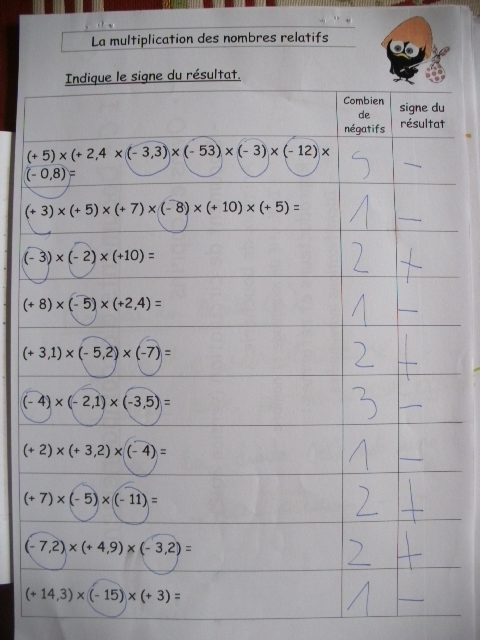 La multiplication des nombres relatifs
Indique le signe du résultat.
Combien de négatifs
signe du résultat
(+ 5) × (+ 2,4 × (- 3,3) × (- 53) × (- 3) × (- 12) ×
(- 0,8) = 5 -
(+ 3) × (+ 5) × (+ 7) × (- 8) × (+ 10) × (+ 5) = 1 -
(- 3) × (- 2) × (+10) = 2 +
(+ 8) × (- 5) × (+2,4) = 1 -
(+ 3,1) × (- 5,2) × (-7) = 2 +
(- 4) × (- 2,1) × (-3,5) = 3 -
(+ 2) × (+ 3,2) × (- 4) = 1 -
(+ 7) × (- 5) × (- 11) = 2 +
(- 7,2) × (+ 4,9) × (- 3,2) = 2 +
(+ 14,3) × (- 15) × (+ 3) = 1 -